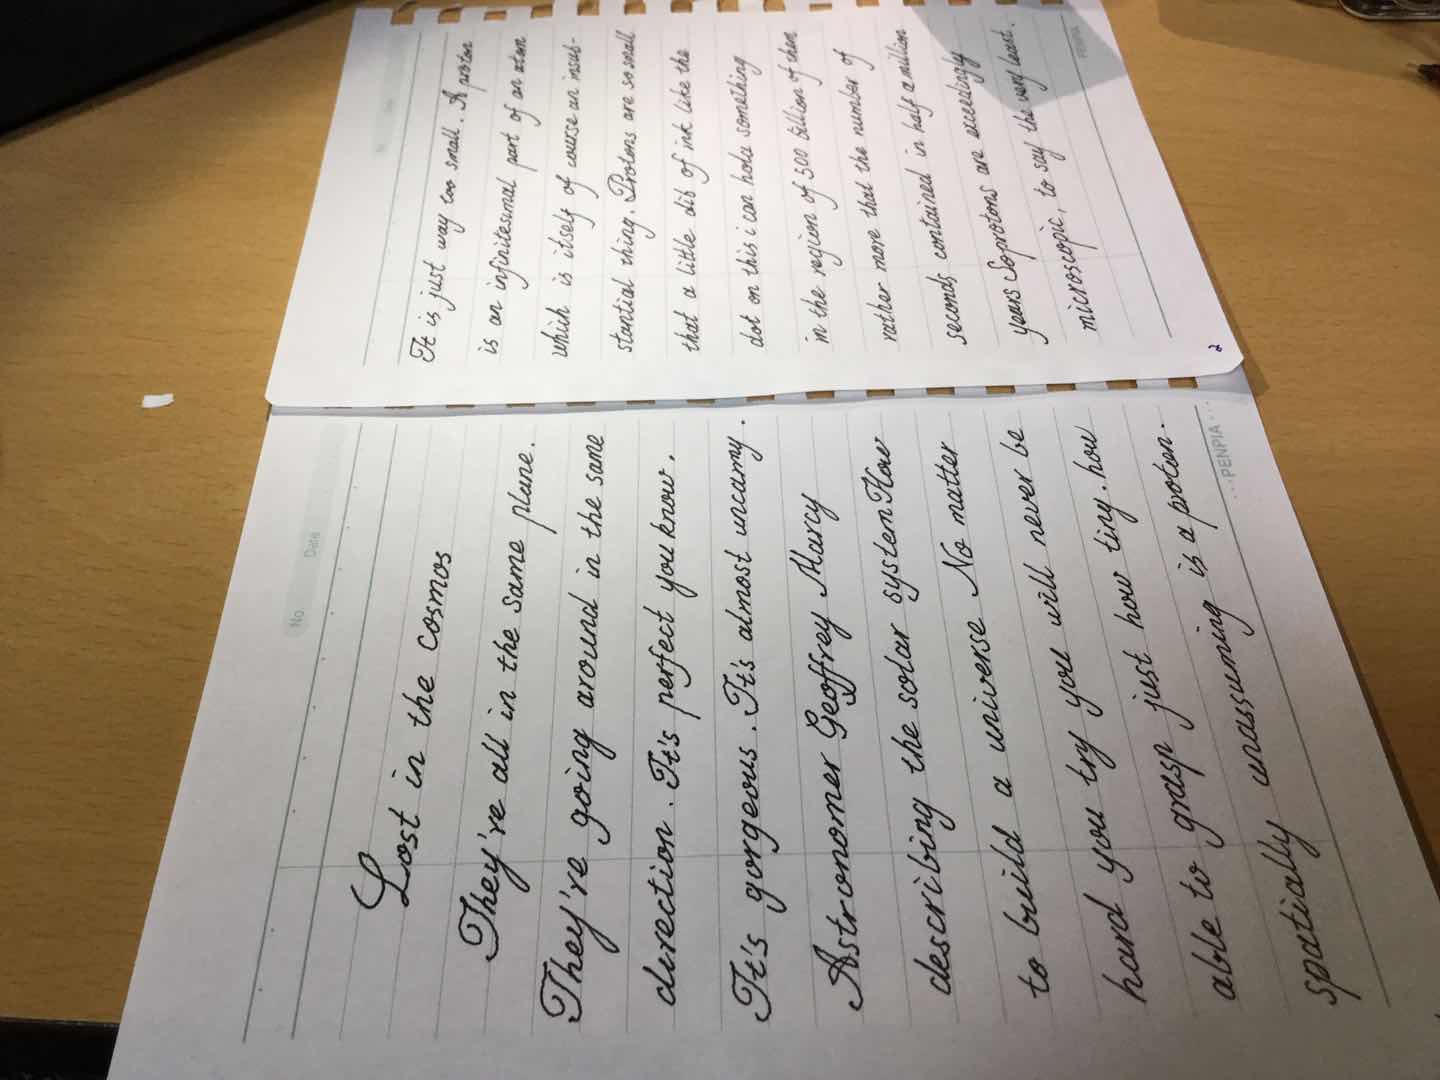 No
Date
Lost in the cosmos
They're all in the same plane.
They're going around in the same
direction. It's perfect you know.
It's gorgeous. It's almost uncamy.
Astronomer Geoffrey Marcy
describing the solar system How
to build a universe No matter
hard you try you will never be
able to grasp just how tiny. how
spatially unassuming is a proton.
PENPIA
It is just way too small. A proton
is an infinitesimal part of an atom
which is itself of course an insub-
stantial thing. Protons are so small
that a little dib of ink like the
dot on this i can hold something
in the region of 500 billion of them
rather more that the number of
seconds contained in half a million
years So protons are exceedingly
microscopic, to say the very least.
PENPIA
2